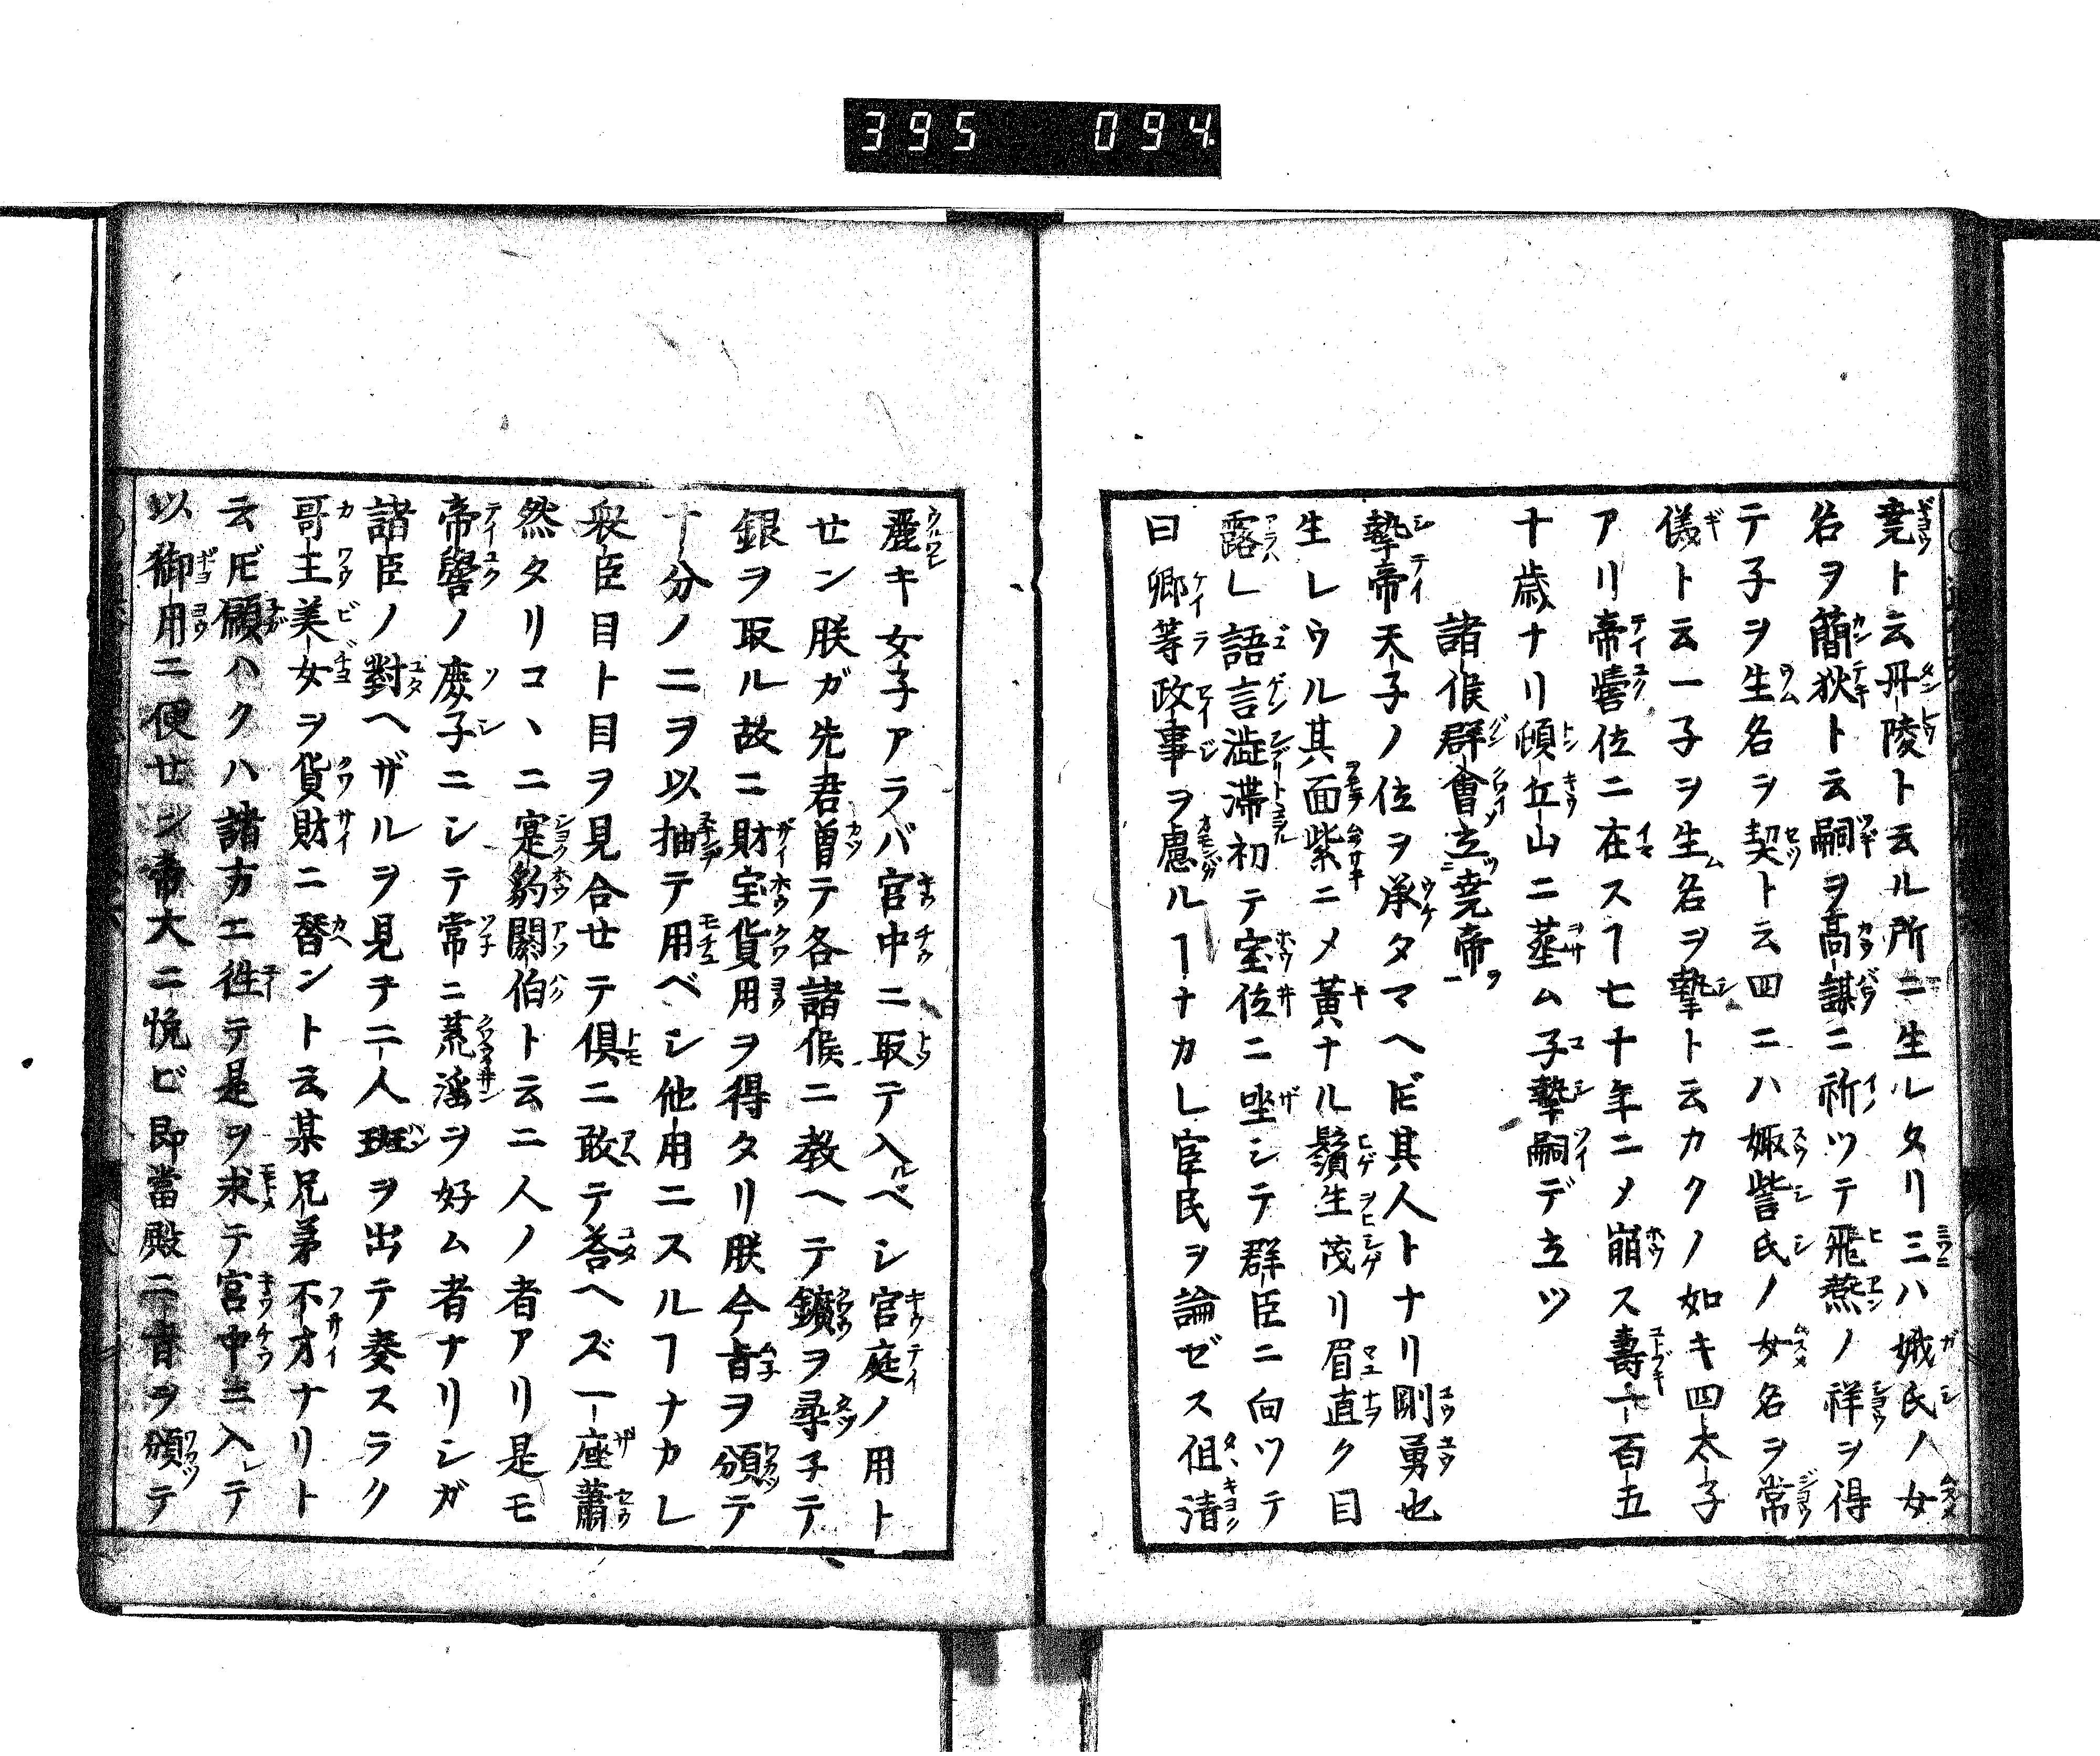 395 094
堯ト云丹陵ト云ル所ニ生レタリ三ハ娥氏ノ女
名ヲ簡狄ト云嗣ヲ高謀ニ祈ツテ飛燕ノ祥ヲ得
テ子ヲ生名ヲ契ト云四ニハ娵訾氏ノ女名ヲ常
儀ト云一子ヲ生名ヲ摯ト云カクノ如キ四太子
アリ帝嚳位ニ在スヿ七十年ニメ崩ス壽一百五
十歳ナリ頓丘山ニ葬ム子摯嗣デ立ツ
諸侯群會立堯帝
摯帝天子ノ位ヲ承タマヘ𪜈其人トナリ剛勇也
生レウル其面紫ニメ黄ナル鬚生茂リ眉直ク目
露レ語言澁滞初テ宝位ニ坐シテ群臣ニ向ツテ
曰卿等政事ヲ慮ルヿナカレ宰民ヲ論ゼス伹清
麗キ女子アラバ宮中ニ取テ入ベシ宮庭ノ用ト
せン朕ガ先君曽テ各諸侯ニ教ヘテ鑛ヲ尋子テ
銀ヲ取ル故ニ財宝貨用ヲ得タリ朕今旨ヲ頒テ
十分ノ二ヲ以抽テ用ベシ他用ニスルヿナカレ
衆臣目ト目ヲ見合せテ倶ニ敢テ荅ヘズ一座蕭
然タリコヽニ寔豹閼伯ト云二人ノ者アリ是モ
帝嚳ノ庶子ニシテ常ニ荒滛ヲ好ム者ナリシガ
諸臣ノ對ヘザルヲ見テ二人班ヲ出テ奏スラク
哥主美女ヲ貨財ニ替ント云某兄弟不才ナリト
云𪜈願ハクハ諸方エ徃テ是ヲ求テ宮中ニ入レテ
以御用ニ便せン帝大ニ悦ビ即當殿ニ旨ヲ頒テ